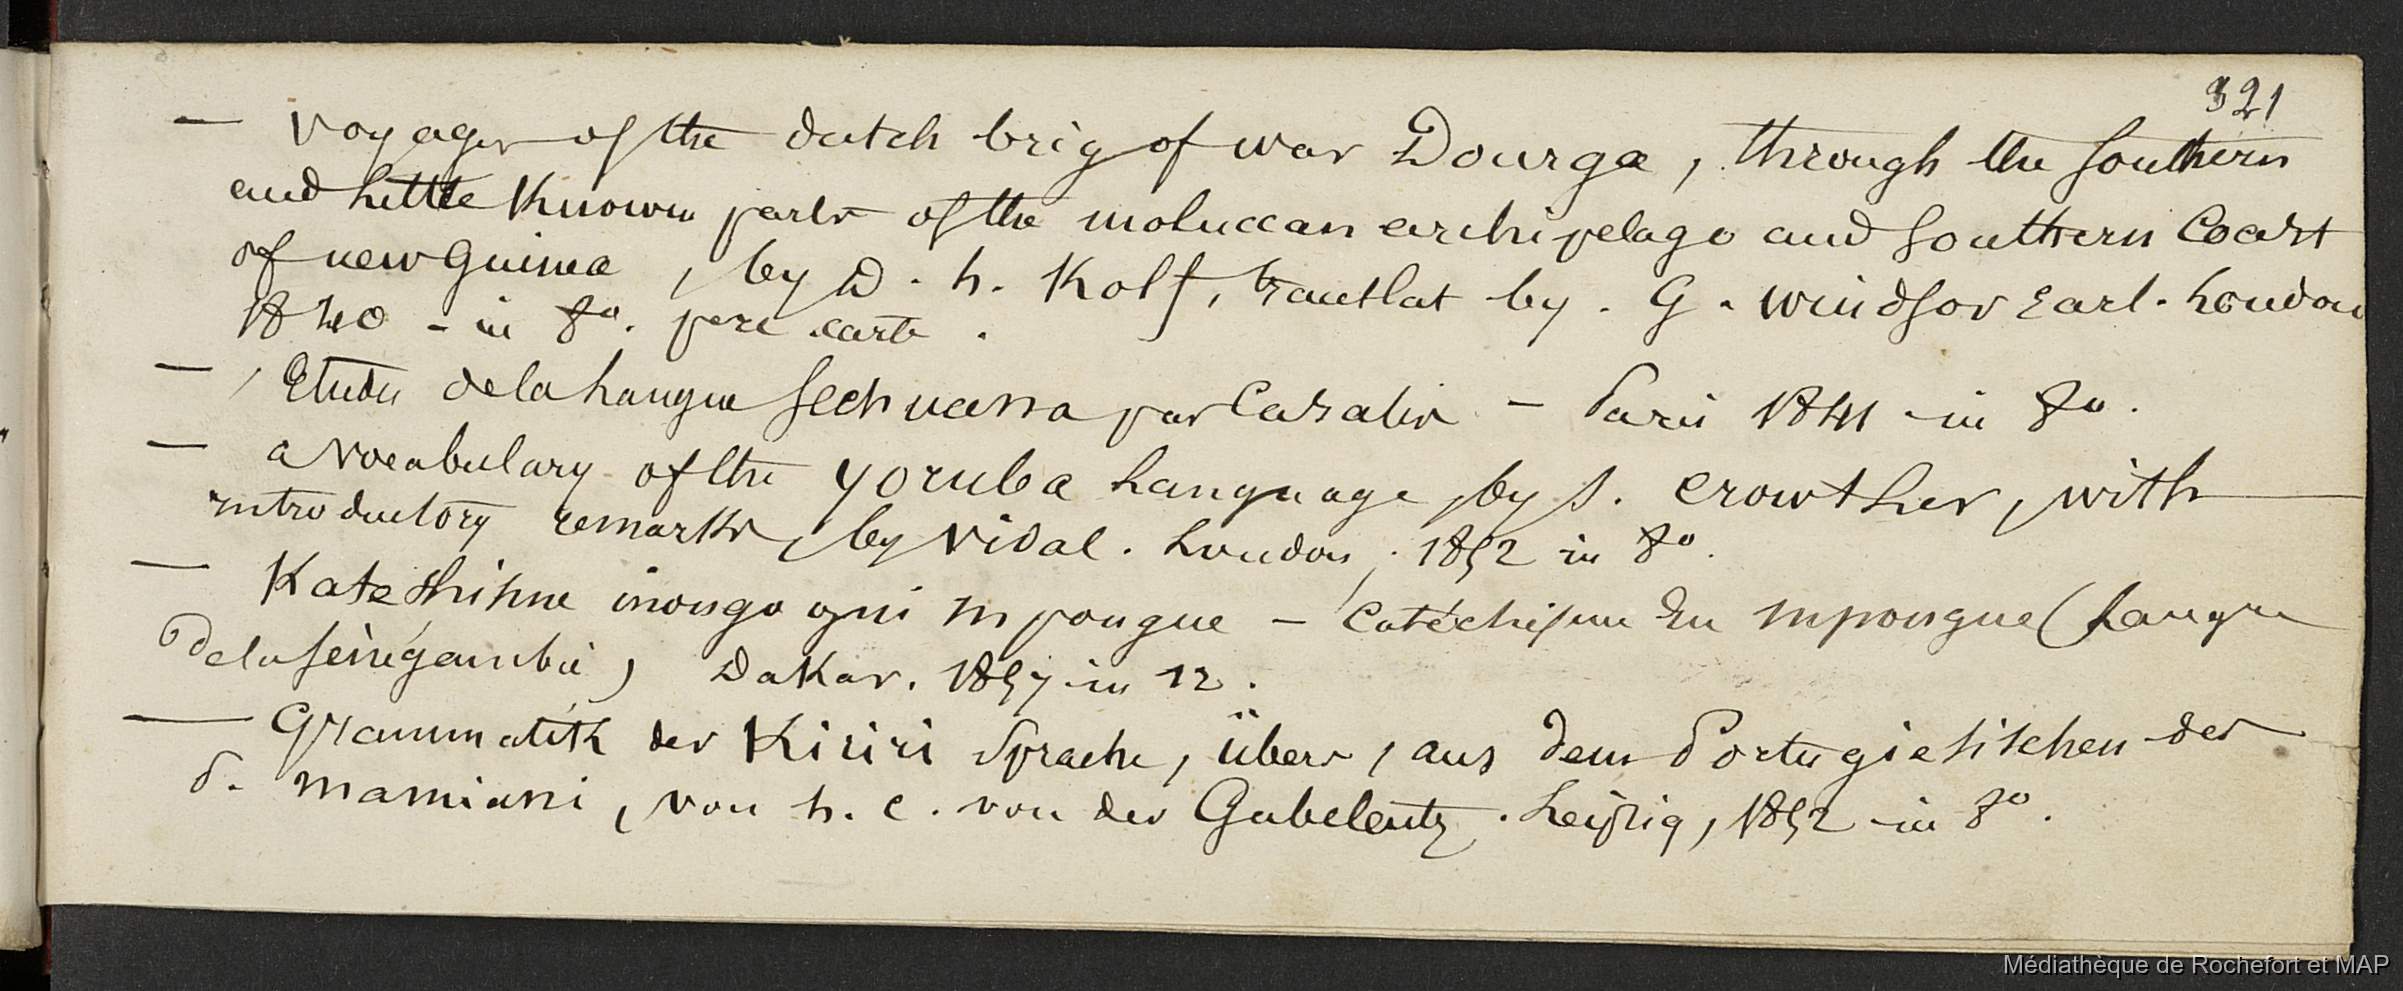 321
— Voyages of the dutch brig of war Dourga, through the Southern
and Little Known parts of the moluccan archipelago and Southern Coast
of new guinea, by D. h. Kolf, translat by. G. windsor Earl. London
1840 - in 8°. carte.
— Etudes de la Langue Sechuana par Casalis - Paris 1841 - in 8°.
— a vocabulary of the yoruba Language, by S. crowther, with
introductory remarks, by Vidal. London, 1852 in 8°.
— Kateshisme inongo ogni mpongue - Catéchisme en mpongue (Langue
de la sénégambie) Dakar. 1857 in 12.
— Grammatik der Kiriri Sprache, übers, aus dem Portugiesischen des
P. mamiani, von h. c. von der Gabelentz. Leipzig, 1852 in 8°.
Médiathèque de Rochefort et MAP